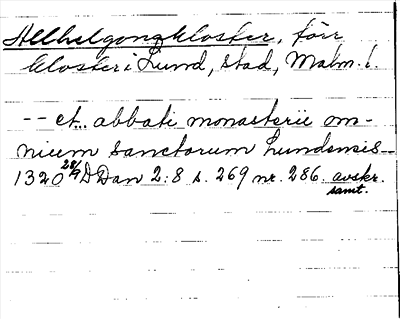 Allhelgonakloster, förr
kloster i Lund, stad, Malm. l.
-- et... abbati monasterii om-
nium sanctorum Lundensis -
1320 28/9 DDan 2:8 s. 269 nr. 286. avskr.
samt.